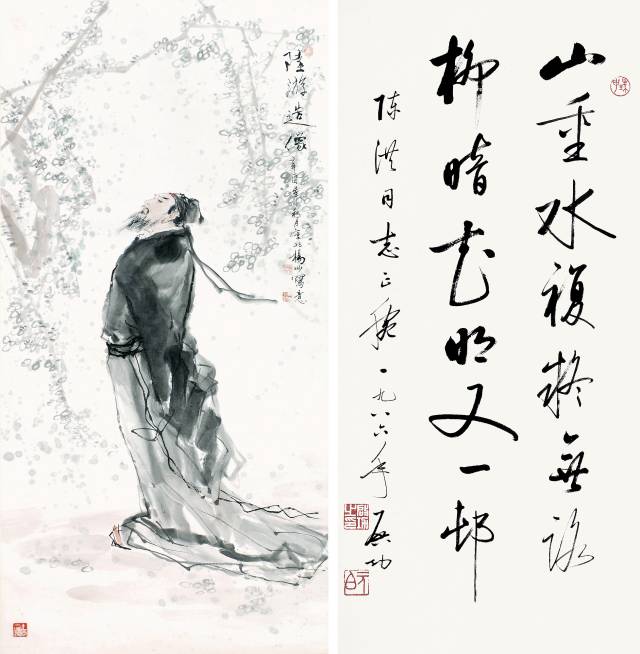 陸游造像
山重水複疑無路
柳暗花明又一邨
陈洪同志正 一九八六年 启功